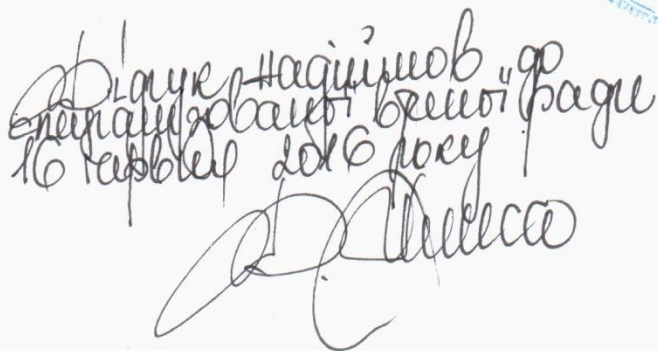 Відгук надійшов до
спеціалізованої вченої ради
16 червня 2016 року